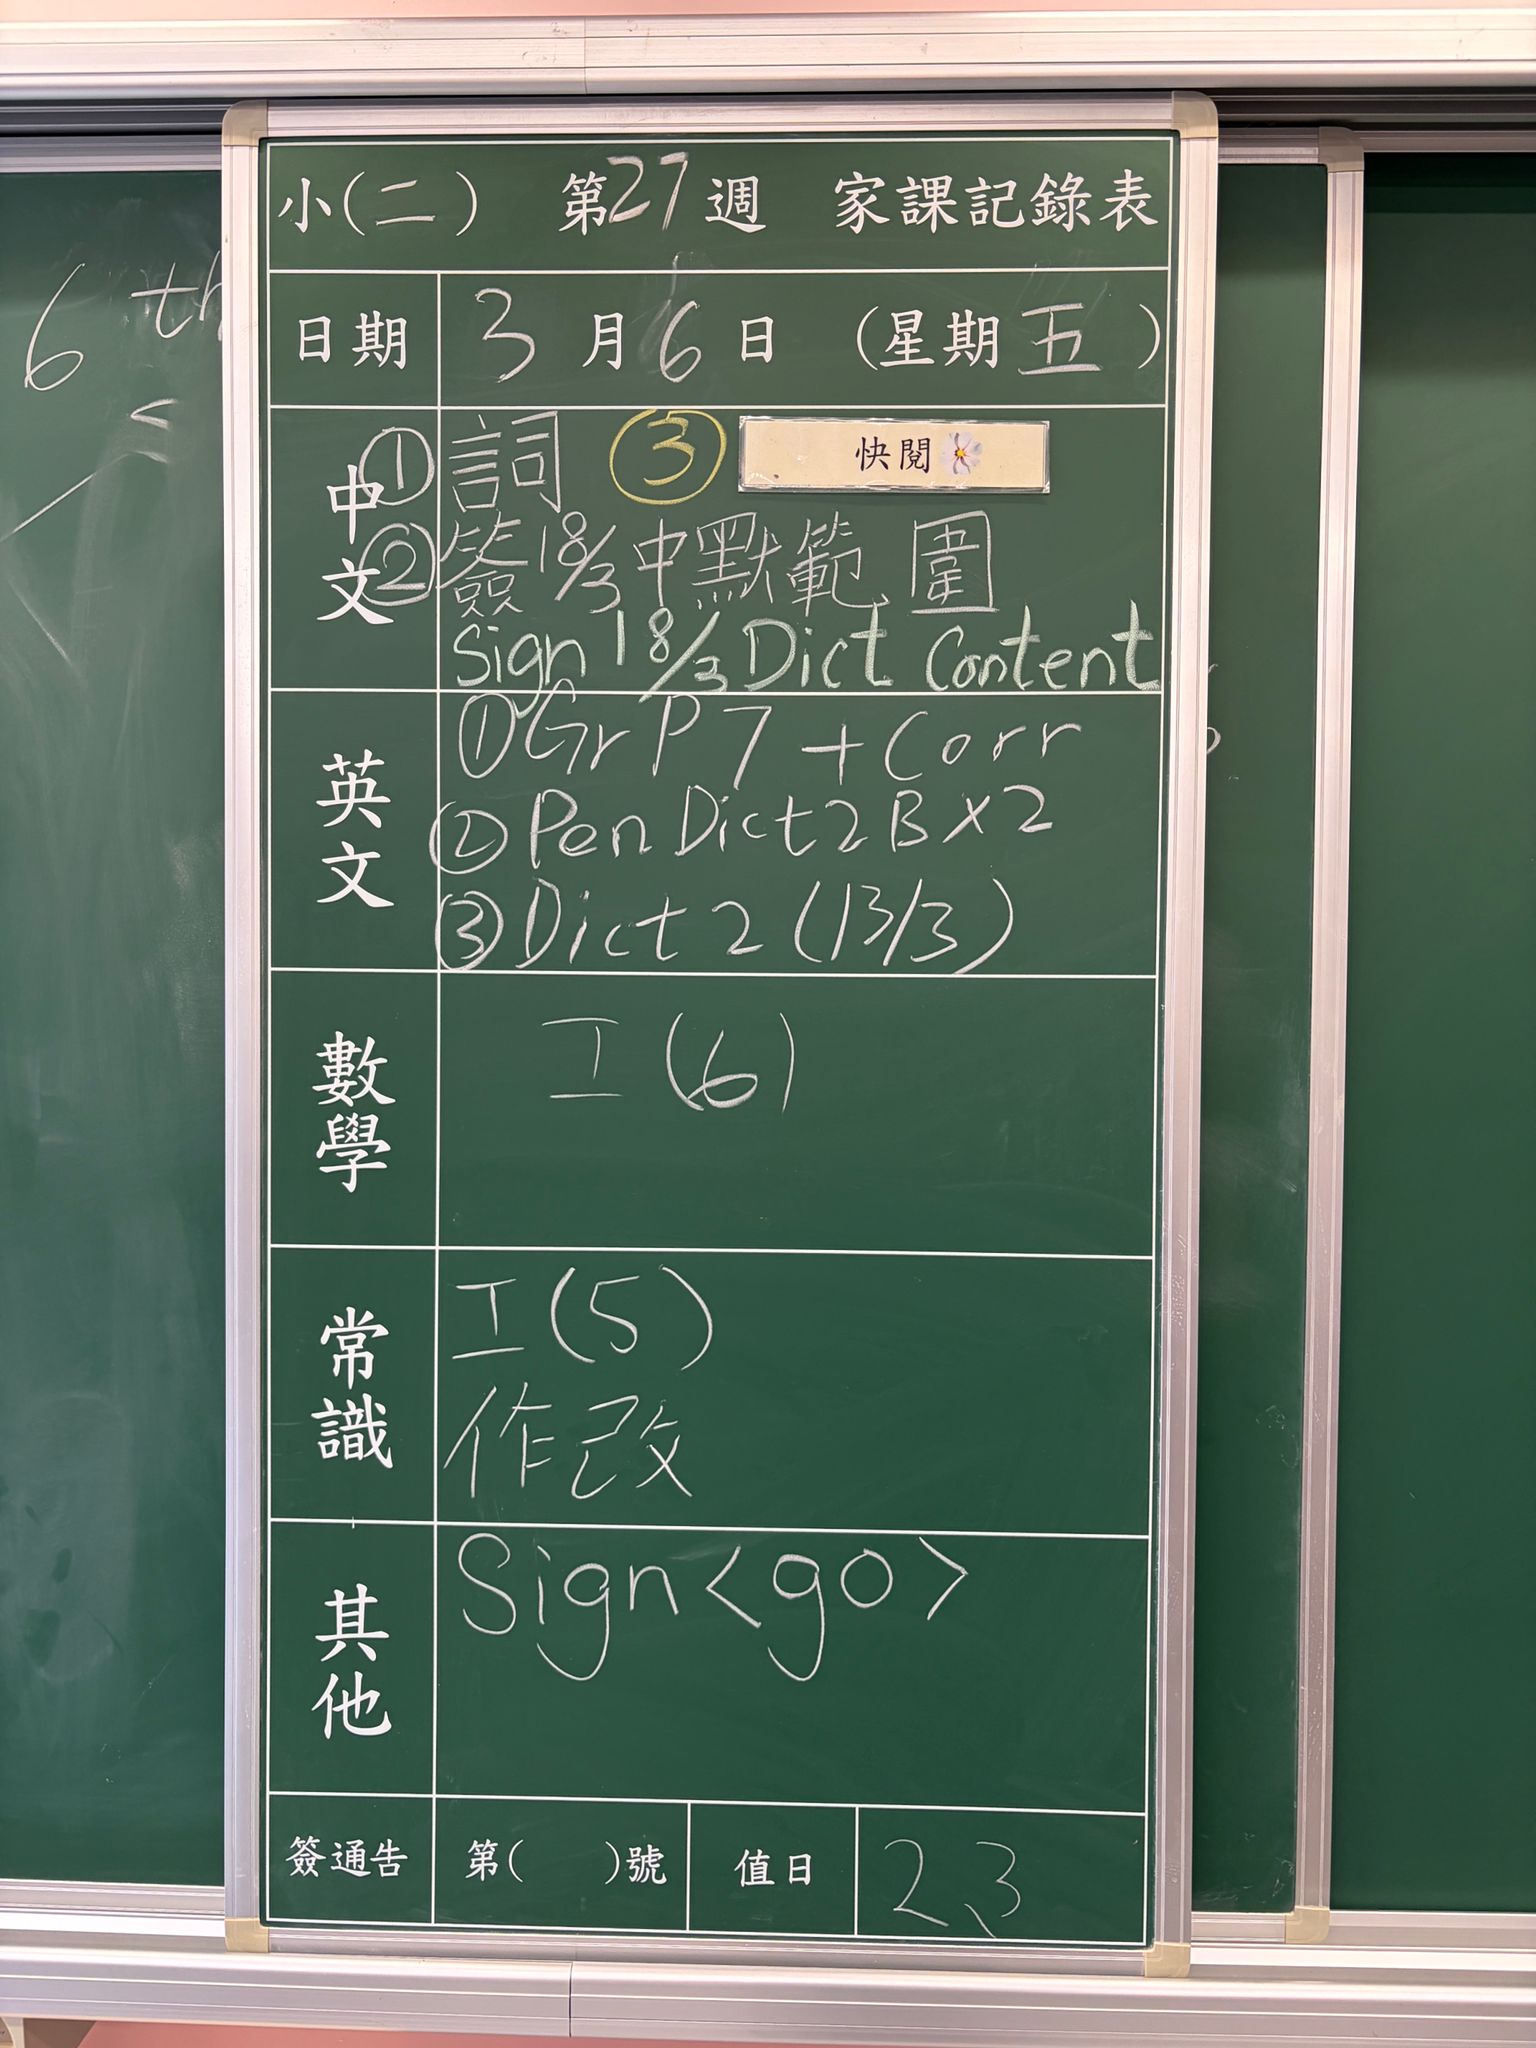 小(二) 第27週 家課記錄表
日期 3月6日 (星期五)
中文
① 詞 ③ 快閱
② 簽18/3中默範圍
Sign 18/3 Dict Content
英文
① Gr P7 + Corr
② Pen Dict 2B x2
③ Dict 2 (13/3)
數學
工(6)
常識
工(5)
作改
其他
Sign <go>
簽通告 第( )號 值日 2、3
6 th